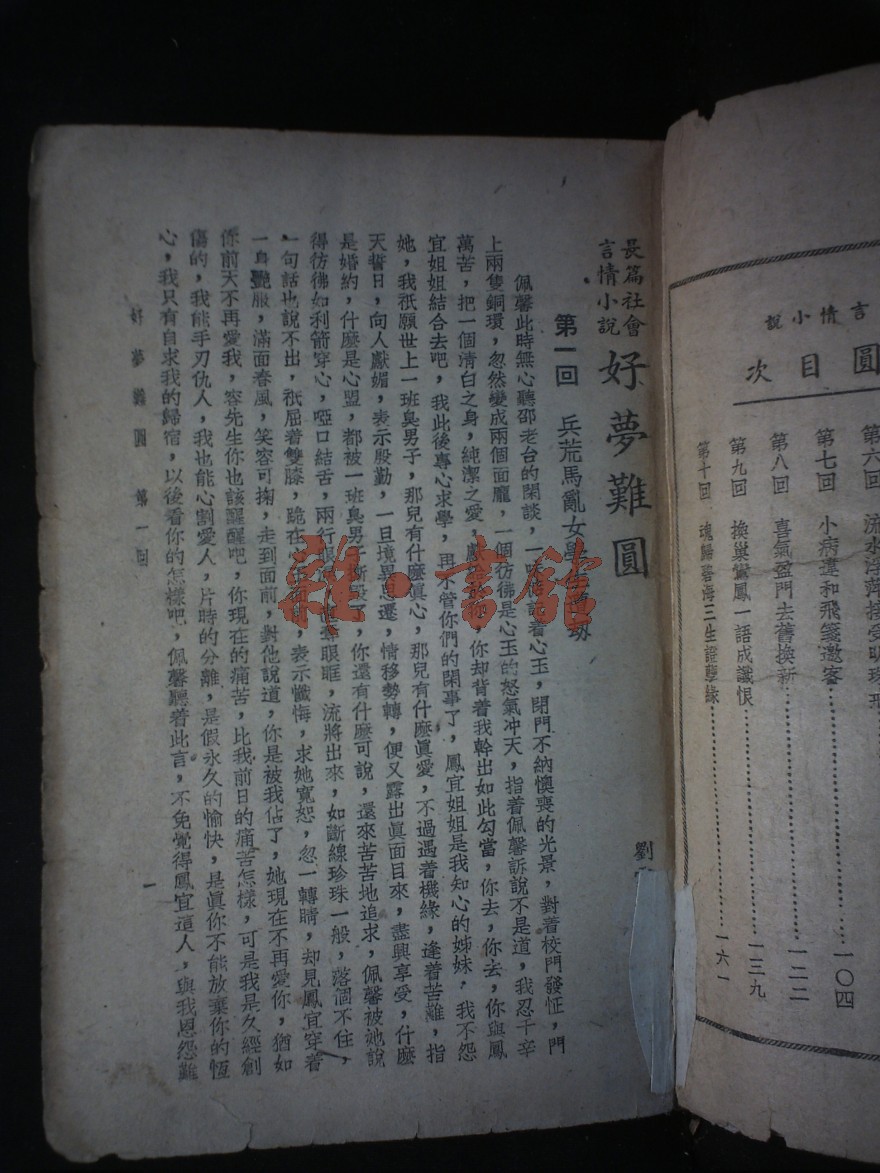 言情小說
圓目次
第六回 流水浮萍接受明珠
第七回 小病違和飛箋邀客……一〇四
第八回 喜氣盈門去舊換新……一二二
第九回 換巢鸞鳳一語成讖恨……一三九
第十回 魂歸碧海三生證孽緣……一六一
長篇社會
言情小說
好夢難圓
劉
第一回 兵荒馬亂女學生遭劫
佩馨此時無心聽邵老台的閑談,一味惦記着心玉,閉門不納懊喪的光景,對着校門發怔,門
上兩隻銅環,忽然變成兩個面龐,一個彷彿是心玉的怒氣冲天,指着佩馨訴說不是道,我忍千辛
萬苦,把一個清白之身,純潔之愛,獻給你,你却背着我幹出如此勾當,你去,你去,你與鳳
宜姐姐結合去吧,我此後專心求學,再不管你們的閑事了,鳳宜姐姐是我知心的姊妹,我不怨
她,我祇願世上一班臭男子,那兒有什麽眞心,那兒有什麽眞愛,不過遇着機緣,逢着苦難,指
天誓日,向人獻媚,表示殷勤,一旦境異思遷,情移勢轉,便又露出眞面目來,盡興享受,什麽
是婚約,什麽是心盟,都被一班臭男子撕毀了,你還有什麽可說,還來苦苦地追求,佩馨被她說
得彷彿如利箭穿心,啞口結舌,兩行眼淚,奪眼眶,流將出來,如斷線珍珠一般,落個不住,
一句話也說不出,祇屈着雙膝,跪在心玉面前,表示懺悔,求她寬恕,忽一轉睛,却見鳳宜穿着
一身艷服,滿面春風,笑容可掬,走到面前,對他說道,你是被我佔了,她現在不再愛你,猶如
你前天不再愛我,容先生你也該醒醒吧,你現在的痛苦,比我前日的痛苦怎樣,可是我是久經創
傷的,我能手刃仇人,我也能心割愛人,片時的分離,是假永久的愉快,是眞你不能放棄你的恆
心,我只有自求我的歸宿,以後看你的怎樣吧,佩馨聽着此言,不免覺得鳳宜這人,與我恩怨難
好夢難圓 第一回
一
雜·書館